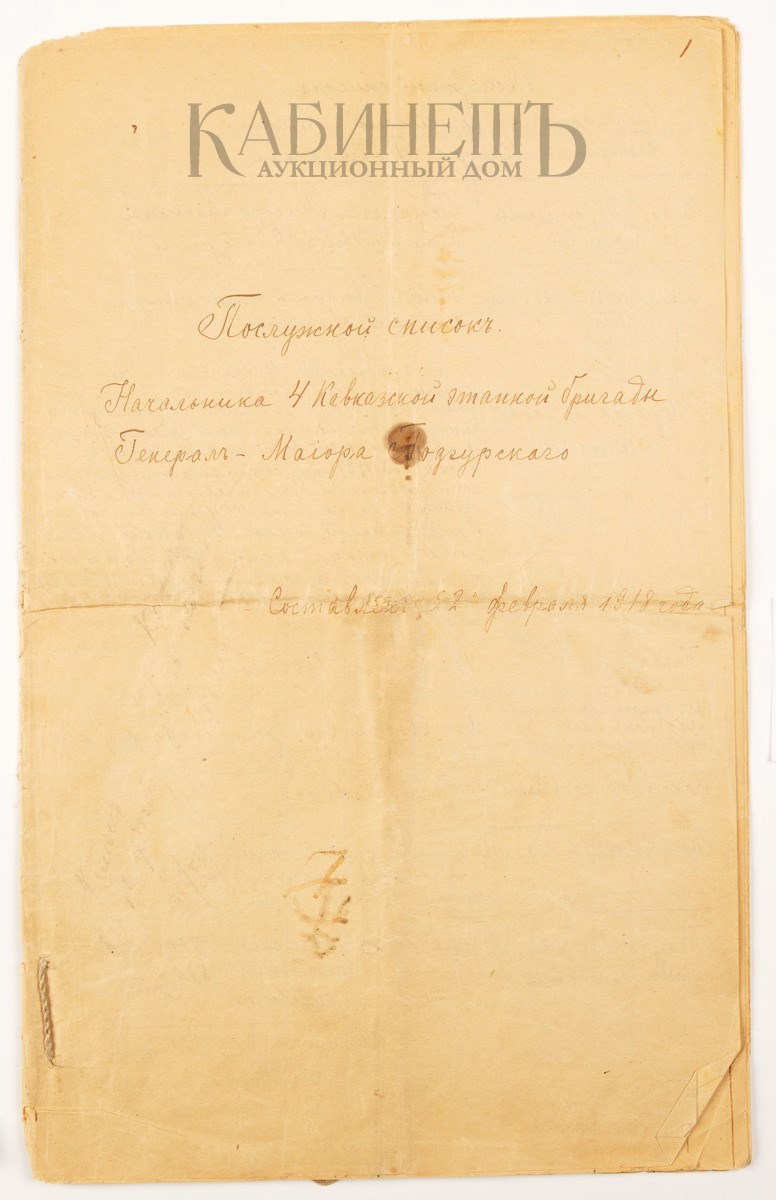 1
КАБИНЕТЪ
АУКЦИОННЫЙ ДОМ
Послужной списокъ.
Начальника 4 Кавказской этапной бригады
Генералъ - Маіора Подгурского
февраля 1918 года